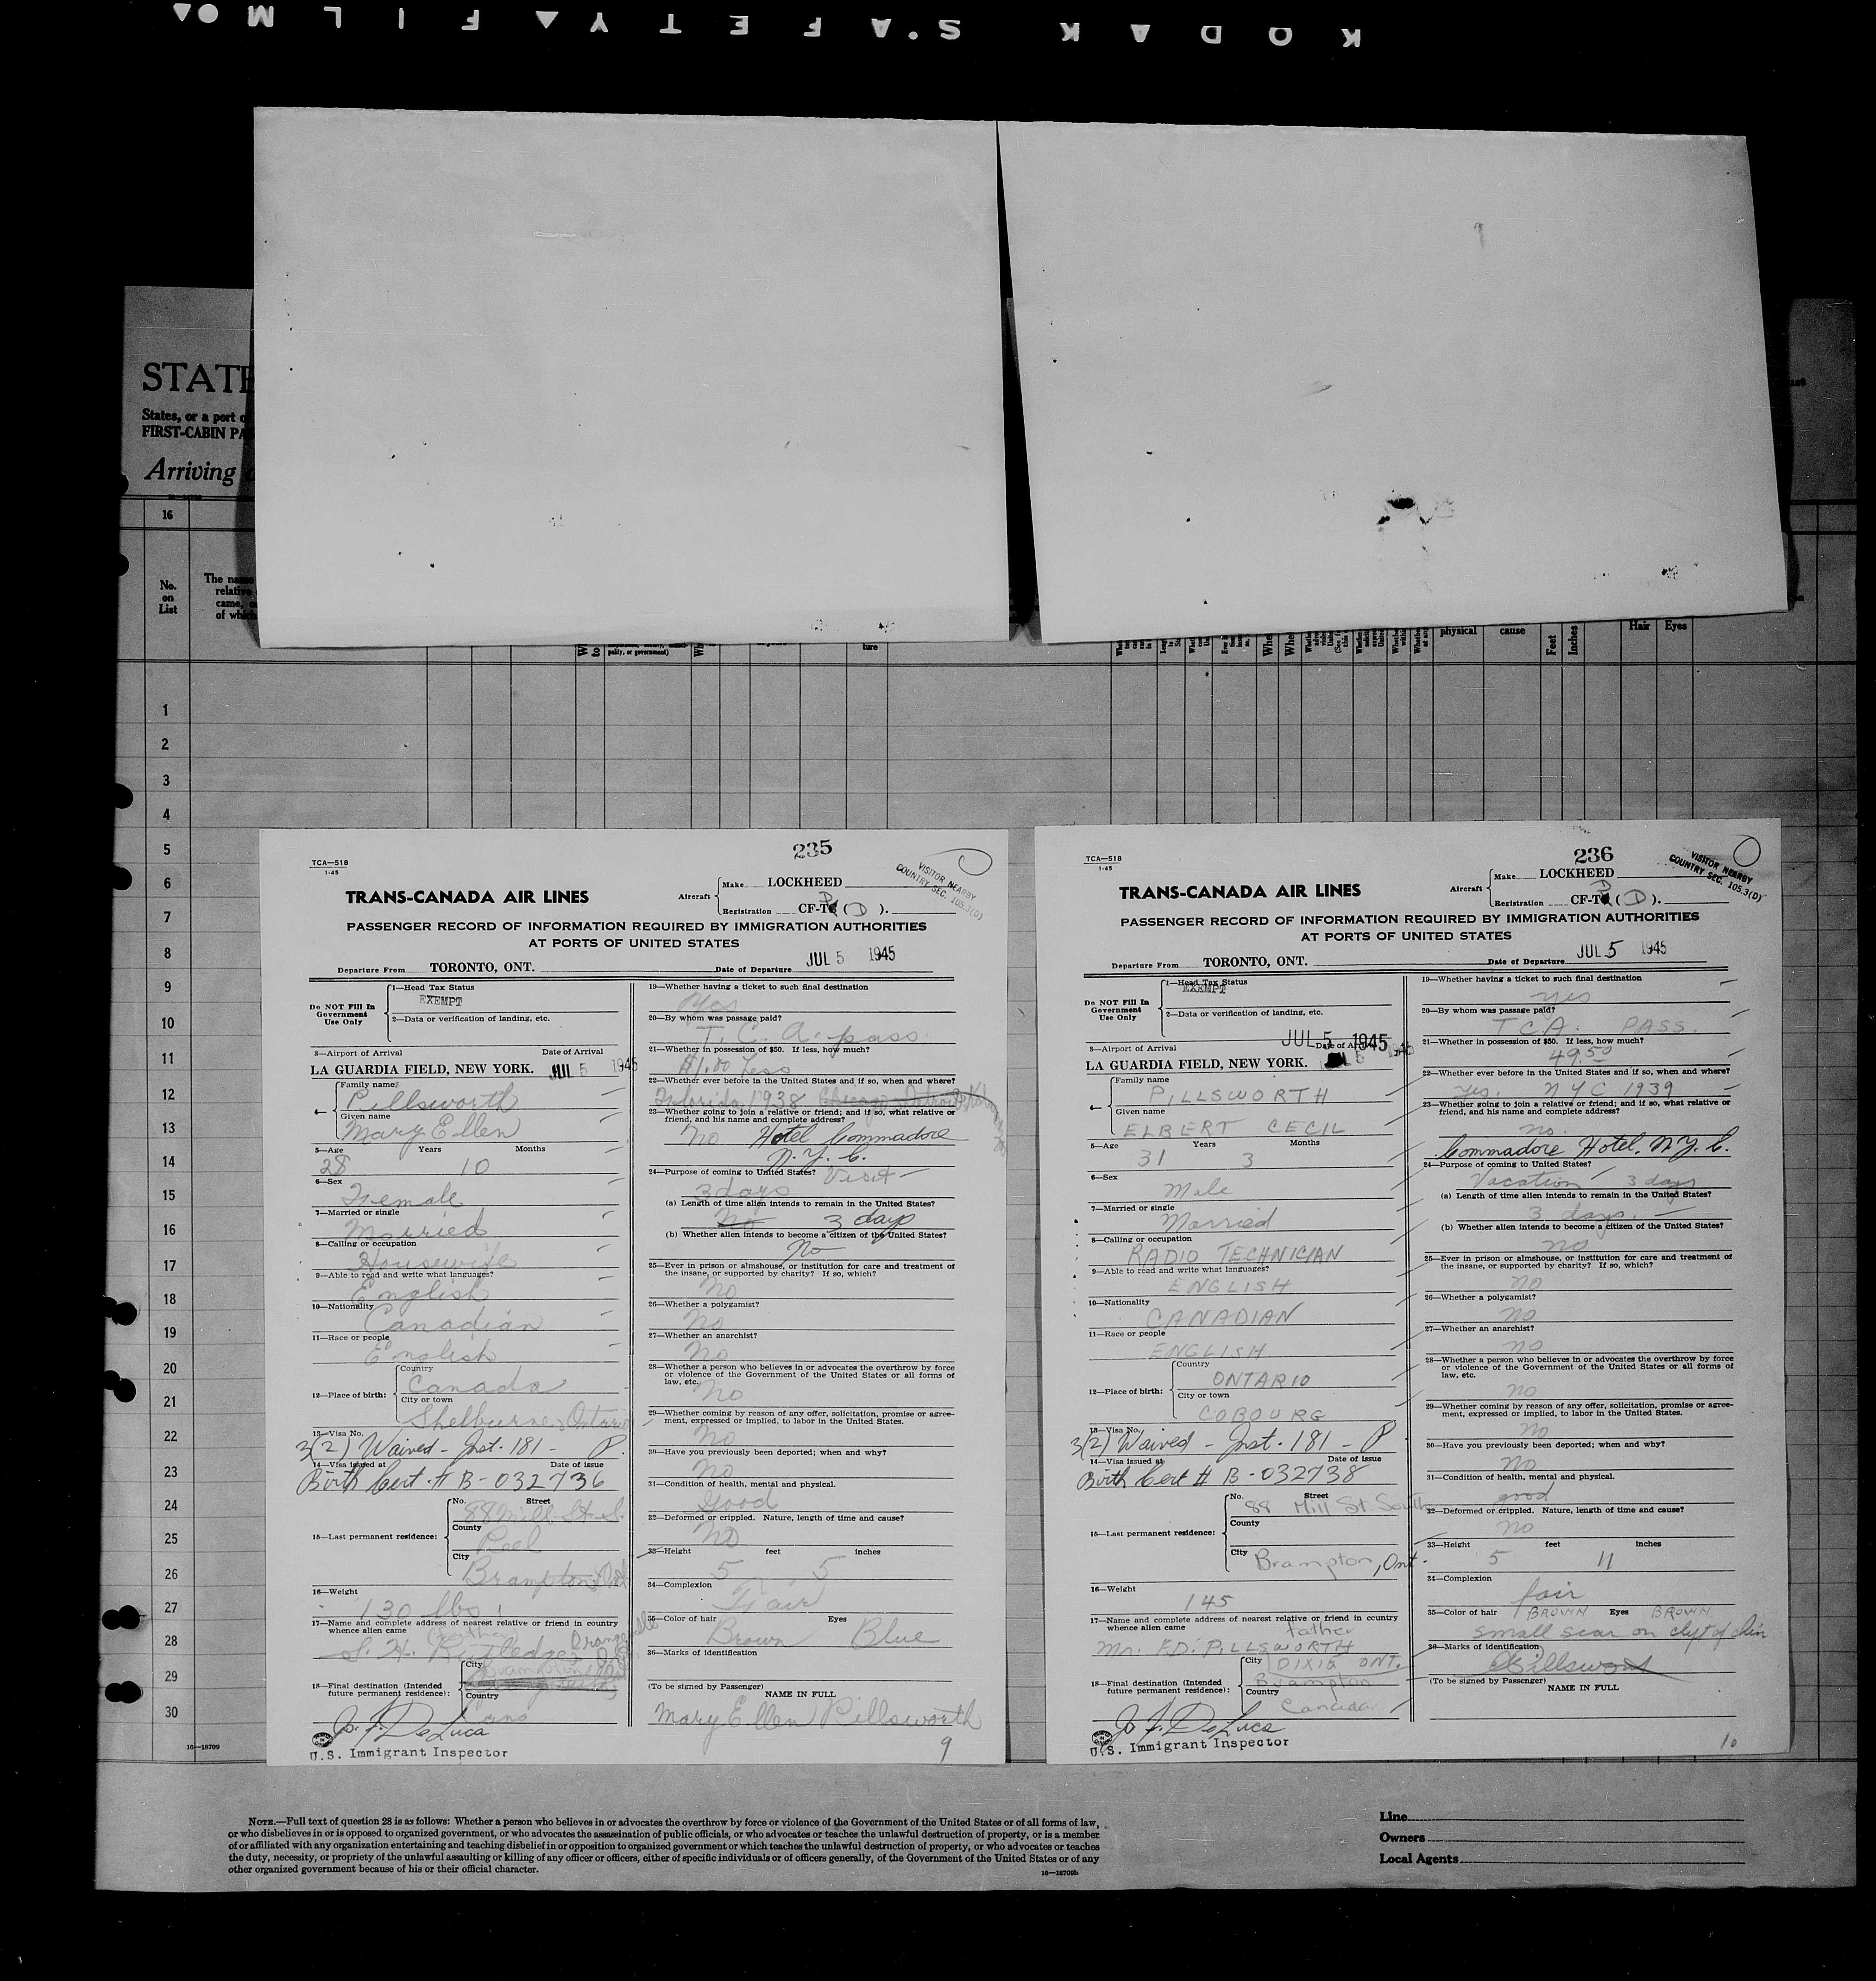 KODAK SAFETY FILM
STATE
States, or a port o
FIRST-CABIN PA
Arriving
16
No.
on
List
The name
relative
came, o
of which
pality, or government)
ture
physical
cause
Feet
Inches
Hair Eyes
1
2
3
4
5
6
7
8
9
10
11
12
13
14
15
16
17
18
19
20
21
22
23
24
25
26
27
28
29
30
16—18709
235
TCA—518
1-45
VISITOR NEARBY
COUNTRY SEC. 105.3(D)
TRANS-CANADA AIR LINES
Aircraft
Make LOCKHEED
Registration CF-T (D).
PASSENGER RECORD OF INFORMATION REQUIRED BY IMMIGRATION AUTHORITIES
AT PORTS OF UNITED STATES
JUL 5 1945
Departure From TORONTO, ONT. Date of Departure
Do NOT Fill In
Government
Use Only
1—Head Tax Status
EXEMPT
2—Data or verification of landing, etc.
3—Airport of Arrival Date of Arrival
LA GUARDIA FIELD, NEW YORK. JUL 5 1945
4—
Family name
Pillsworth
Given name
Mary Ellen
5—Age Years Months
28 10
6—Sex
Female
7—Married or single
Married
8—Calling or occupation
Housewife
9—Able to read and write what languages?
English
10—Nationality
Canadian
11—Race or people
English
12—Place of birth:
Country
Canada
City or town
Shelburne, Ontario
13—Visa No.
3(2) Waived - Inst. 181 - P.
14—Visa issued at Date of issue
Birth Cert. # B-032736
15—Last permanent residence:
No. Street
88 Mill St. S.
County
Peel
City
Brampton Ont
16—Weight
130 lbs.
17—Name and complete address of nearest relative or friend in country
whence alien came
S. H. Rutledge, Orangeville
18—Final destination (Intended
future permanent residence):
City
Brampton
Country
Jo. J. DeLuca
U.S. Immigrant Inspector
19—Whether having a ticket to such final destination
Yes
20—By whom was passage paid?
T. C. A. pass.
21—Whether in possession of $50. If less, how much?
$1.00 Less
22—Whether ever before in the United States and if so, when and where?
1938 Chicago Detroit
23—Whether going to join a relative or friend; and if so, what relative or
friend, and his name and complete address?
No Hotel Commadore
N.Y.C.
24—Purpose of coming to United States? Visit
3 days
(a) Length of time alien intends to remain in the United States?
No 3 days
(b) Whether alien intends to become a citizen of the United States?
No
25—Ever in prison or almshouse, or institution for care and treatment of
the insane, or supported by charity? If so, which?
No
26—Whether a polygamist?
No
27—Whether an anarchist?
No
28—Whether a person who believes in or advocates the overthrow by force
or violence of the Government of the United States or all forms of
law, etc.
No
29—Whether coming by reason of any offer, solicitation, promise or agree-
ment, expressed or implied, to labor in the United States.
No
30—Have you previously been deported; when and why?
No
31—Condition of health, mental and physical.
Good
32—Deformed or crippled. Nature, length of time and cause?
No
33—Height feet inches
5 5
34—Complexion
Fair
35—Color of hair Eyes
Brown Blue
36—Marks of identification
(To be signed by Passenger)
NAME IN FULL
Mary Ellen Pillsworth
9
236
TCA—518
1-45
VISITOR NEARBY
COUNTRY SEC. 105.3(D)
TRANS-CANADA AIR LINES
Aircraft
Make LOCKHEED
Registration CF-T (D).
PASSENGER RECORD OF INFORMATION REQUIRED BY IMMIGRATION AUTHORITIES
AT PORTS OF UNITED STATES
JUL 5 1945
Departure From TORONTO, ONT. Date of Departure
Do NOT Fill In
Government
Use Only
1—Head Tax Status
EXEMPT
2—Data or verification of landing, etc.
JUL 5 1945
3—Airport of Arrival Date of Arrival
LA GUARDIA FIELD, NEW YORK.
4—
Family name
PILLSWORTH
Given name
ELBERT CECIL
5—Age Years Months
31 3
6—Sex
Male
7—Married or single
Married
8—Calling or occupation
RADIO TECHNICIAN
9—Able to read and write what languages?
ENGLISH
10—Nationality
CANADIAN
11—Race or people
ENGLISH
12—Place of birth:
Country
ONTARIO
City or town
COBOURG
13—Visa No.
3(2) Waived - Inst. 181 - P
14—Visa issued at Date of issue
Birth Cert # B-032738
15—Last permanent residence:
No. Street
88 Mill St. South
County
City
Brampton, Ont.
16—Weight
145
17—Name and complete address of nearest relative or friend in country
whence alien came father
Mr. F.D. PILLSWORTH
18—Final destination (Intended
future permanent residence):
City DIXIE ONT.
Brampton
Country
Canada
Jo. J. DeLuca
U.S. Immigrant Inspector
19—Whether having a ticket to such final destination
yes
20—By whom was passage paid?
TCA. PASS.
21—Whether in possession of $50. If less, how much?
49.50
22—Whether ever before in the United States and if so, when and where?
yes. NYC 1939
23—Whether going to join a relative or friend; and if so, what relative or
friend, and his name and complete address?
no.
Commadore Hotel, N.Y.C.
24—Purpose of coming to United States?
Vacation 3 days
(a) Length of time alien intends to remain in the United States?
3 days.
(b) Whether alien intends to become a citizen of the United States?
no
25—Ever in prison or almshouse, or institution for care and treatment of
the insane, or supported by charity? If so, which?
no
26—Whether a polygamist?
no
27—Whether an anarchist?
no
28—Whether a person who believes in or advocates the overthrow by force
or violence of the Government of the United States or all forms of
law, etc.
no
29—Whether coming by reason of any offer, solicitation, promise or agree-
ment, expressed or implied, to labor in the United States.
no
30—Have you previously been deported; when and why?
no
31—Condition of health, mental and physical.
good
32—Deformed or crippled. Nature, length of time and cause?
no
33—Height feet inches
5 11
34—Complexion
fair
35—Color of hair BROWN Eyes BROWN
small scar on cleft of chin
36—Marks of identification
(To be signed by Passenger)
NAME IN FULL
10
NOTE.—Full text of question 28 is as follows: Whether a person who believes in or advocates the overthrow by force or violence of the Government of the United States or of all forms of law,
or who disbelieves in or is opposed to organized government, or who advocates the assassination of public officials, or who advocates or teaches the unlawful destruction of property, or is a member
of or affiliated with any organization entertaining and teaching disbelief in or opposition to organized government or which teaches the unlawful destruction of property, or who advocates or teaches
the duty, necessity, or propriety of the unlawful assaulting or killing of any officer or officers, either of specific individuals or of officers generally, of the Government of the United States or of any
other organized government because of his or their official character.
16—18709b
Line
Owners
Local Agents